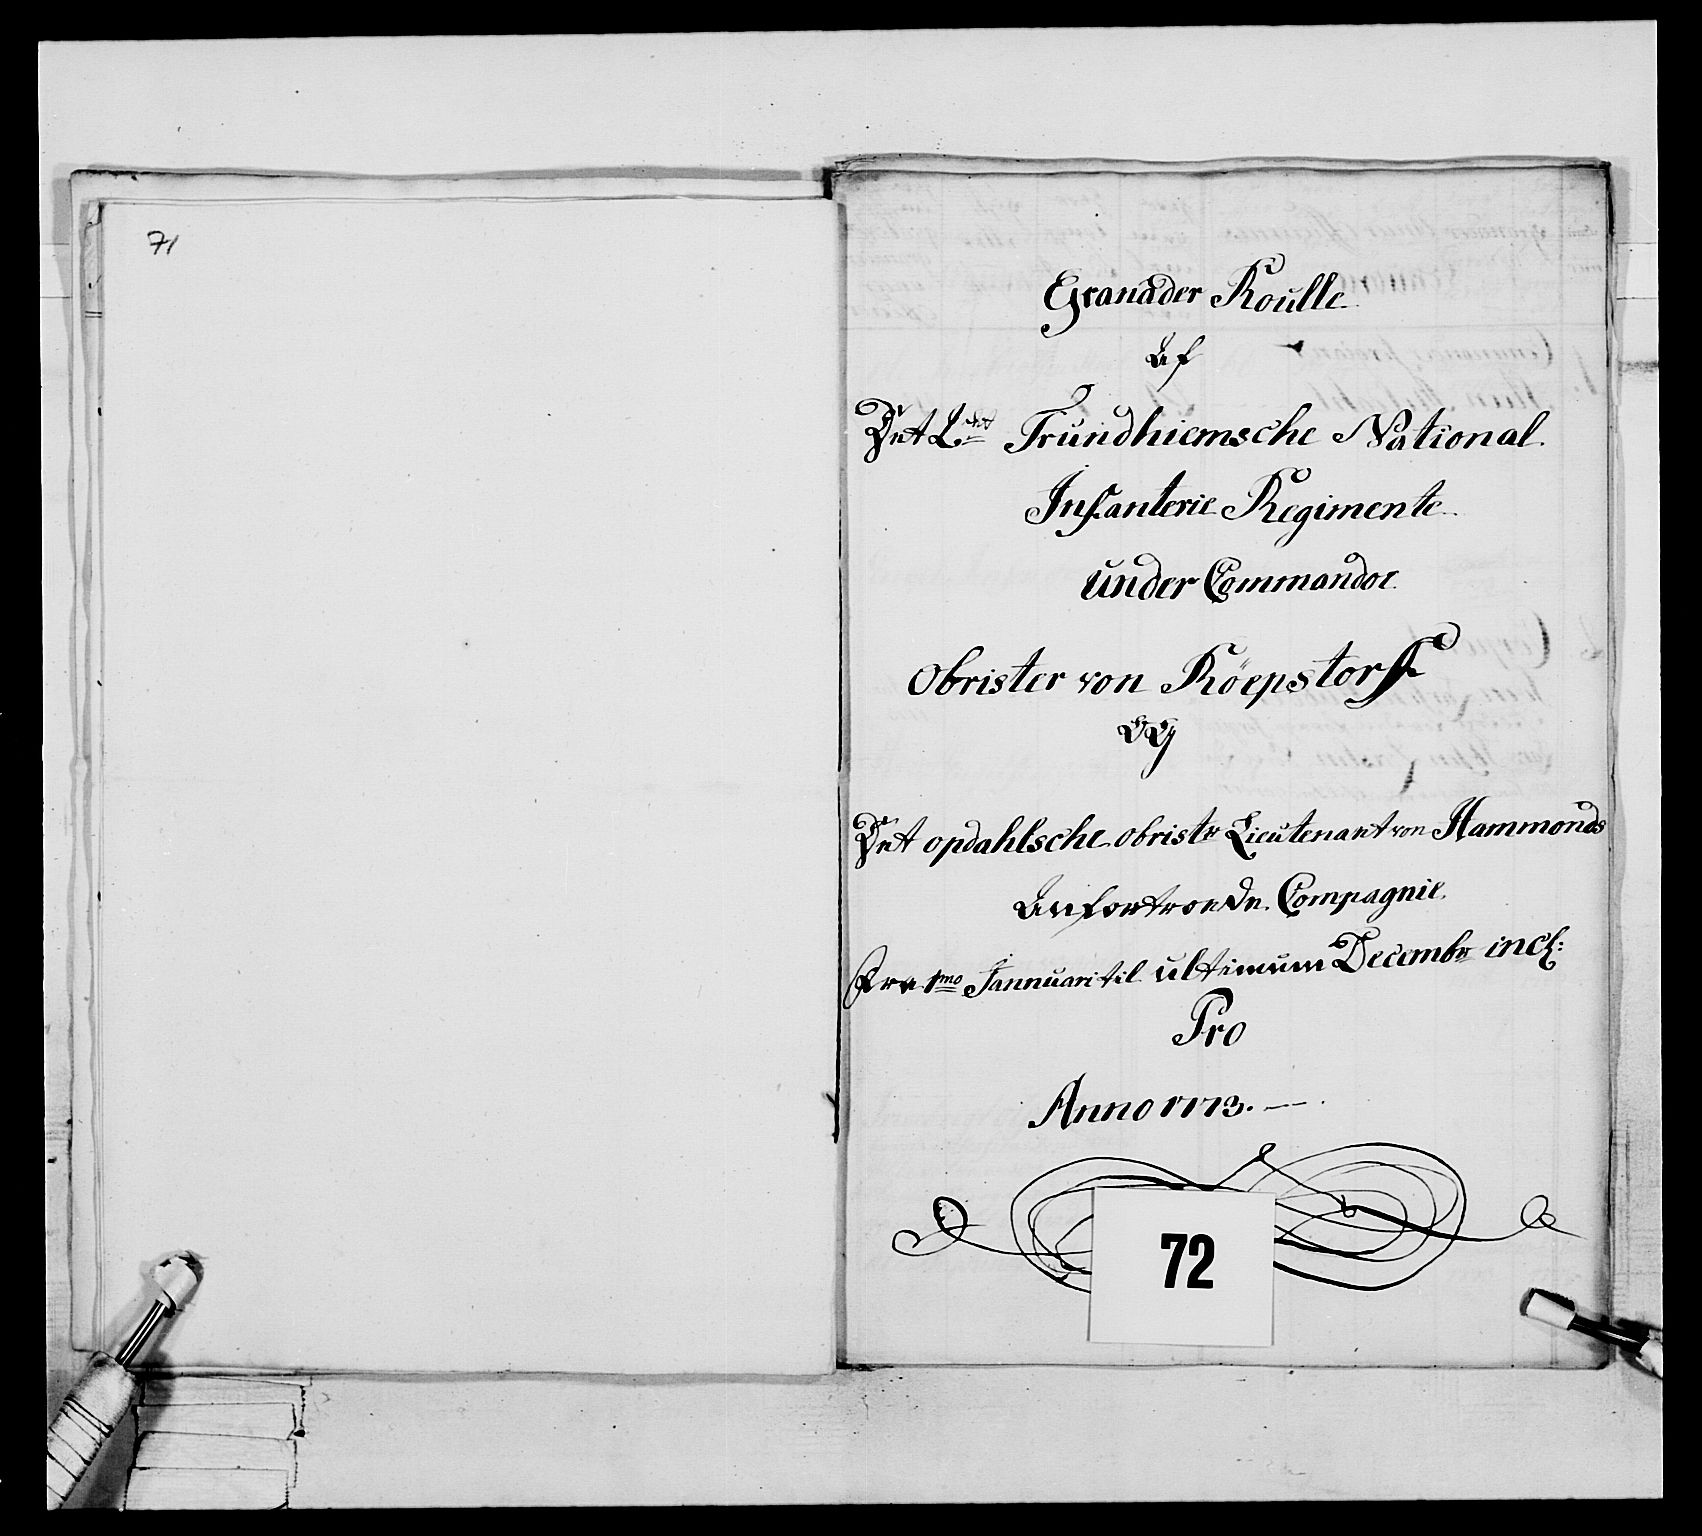 71
Granader Roulle
Af
Det 2det Trundhiemsche National
Infanterie Regimente
under Commandoe
Obrister von Röepstorff
OG
Det opdahlsche obristr Lieutenant von Hammonds
Anfortroede Compagnie
Fra 1mo Jannuari til ultimum Decembr incl:
Pro
Anno 1773.
72